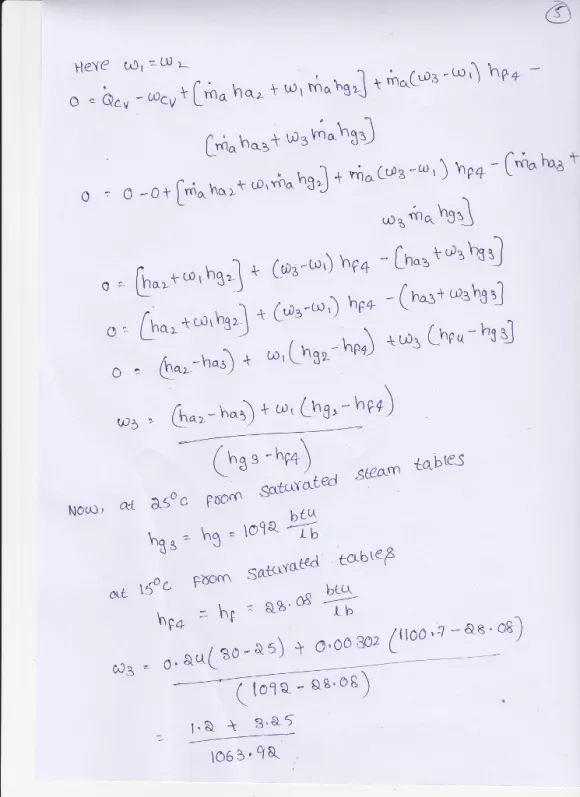 5
Here ω₁ = ω₂
0 = Q̇cv - ωcv + [ṁa ha₂ + ω₁ ṁa hg₂] + ṁa(ω₃ - ω₁) hf4 -
[ṁa ha₃ + ω₃ ṁa hg₃]
0 = 0 - 0 + [ṁa ha₂ + ω₁ ṁa hg₂] + ṁa (ω₃ - ω₁) hf4 - [ṁa ha₃ +
ω₃ ṁa hg₃]
0 = [ha₂ + ω₁ hg₂] + (ω₃ - ω₁) hf4 - [ha₃ + ω₃ hg₃]
0 = [ha₂ + ω₁ hg₂] + (ω₃ - ω₁) hf4 - [ha₃ + ω₃ hg₃]
0 = (ha₂ - ha₃) + ω₁ (hg₂ - hf4) + ω₃ [hf4 - hg₃]
ω₃ = (ha₂ - ha₃) + ω₁ (hg₂ - hf4)
(hg₃ - hf4)
Now, at 25°C from saturated steam tables
hg₃ = hg = 1092 btu/lb
at 15°C from saturated tables
hf4 = hf = 28.08 btu/lb
ω₃ = 0.24(30-25) + 0.00302 (1100.7 - 28.08)
(1092 - 28.08)
= 1.2 + 3.25
1063.92